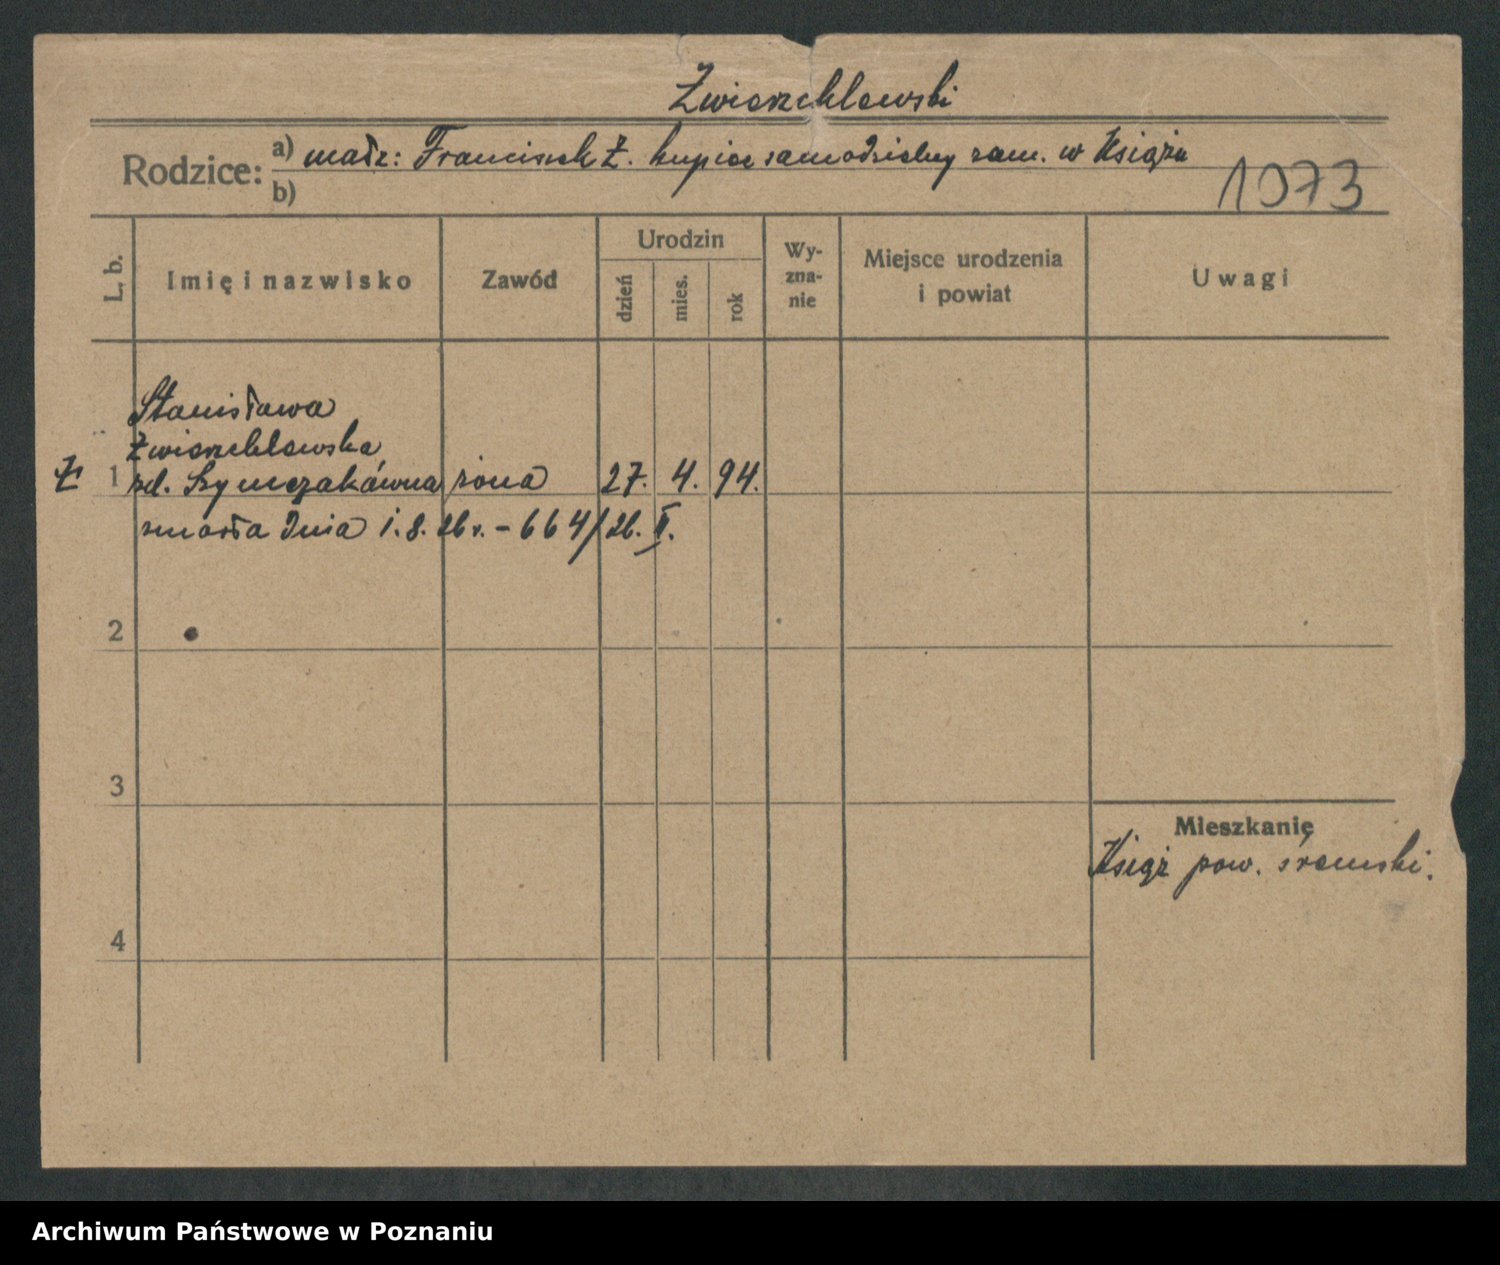 Zwierzchlewski
Rodzice:
a) małż: Franciszek Z. kupiec samodzielny zam. w Książu
b)
1073
L. b.
Imię i nazwisko
Zawód
Urodzin
dzień
mies.
rok
Wy-
zna-
nie
Miejsce urodzenia
i powiat
Uwagi
Stanisława
Zwierzchlewska
1 zd. Szymczakówna żona 27. 4. 94.
zmarła dnia 1.8.26 r. - 664/26. II.
2
3
4
Mieszkanie
Książ pow. śremski.
Archiwum Państwowe w Poznaniu